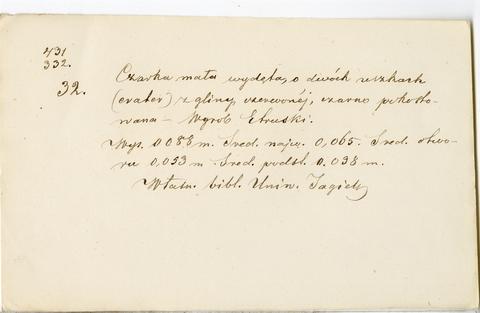 431
332.
32. Czarka mała wydęta, o dwóch uszkach
(crater) z gliny czerwonéj, czarno pokosto-
wana – Wyrób Etruski.
Wys. 0.083 m. Śred. najw. 0,065. Śred. otwo-
ru 0,053 m. Śred. podst. 0.038 m.
Własn. bibl. Uniw. Jagiell.